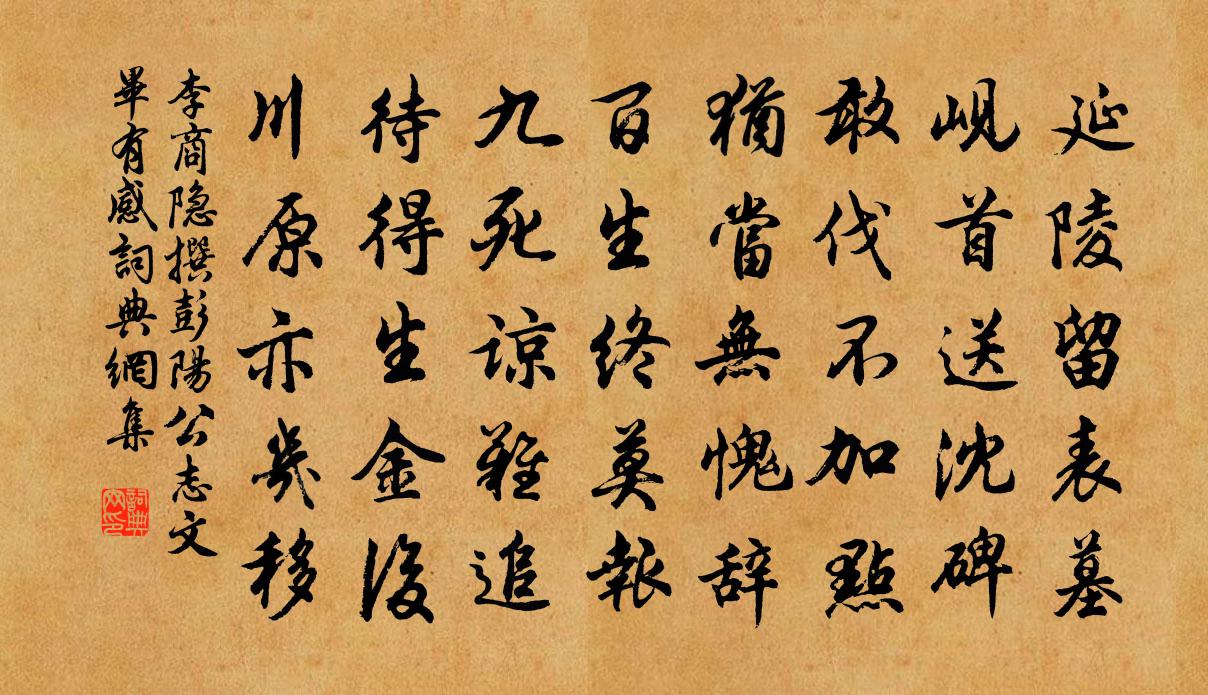 延陵留表墓
峴首送沈碑
敢伐不加點
猶當無愧辞
百生終莫報
九死谅難追
待得生金後
川原亦幾移
李商隐撰彭陽公志文
畢有感詞典網集
詞典网印